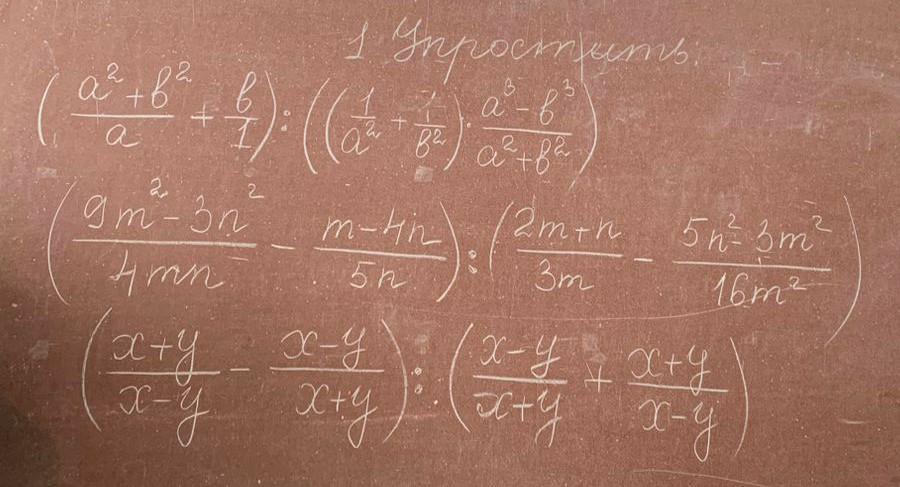 1 Упростить:
( (a² + b²)/a + b/1 ) : ( (1/a² + 1/b²) · (a³ - b³)/(a² + b²) )
( (9m² - 3n²)/(4mn) - (m - 4n)/(5n) ) : ( (2m + n)/(3m) - (5n² - 3m²)/(16m²) )
( (x + y)/(x - y) - (x - y)/(x + y) ) : ( (x - y)/(x + y) + (x + y)/(x - y) )